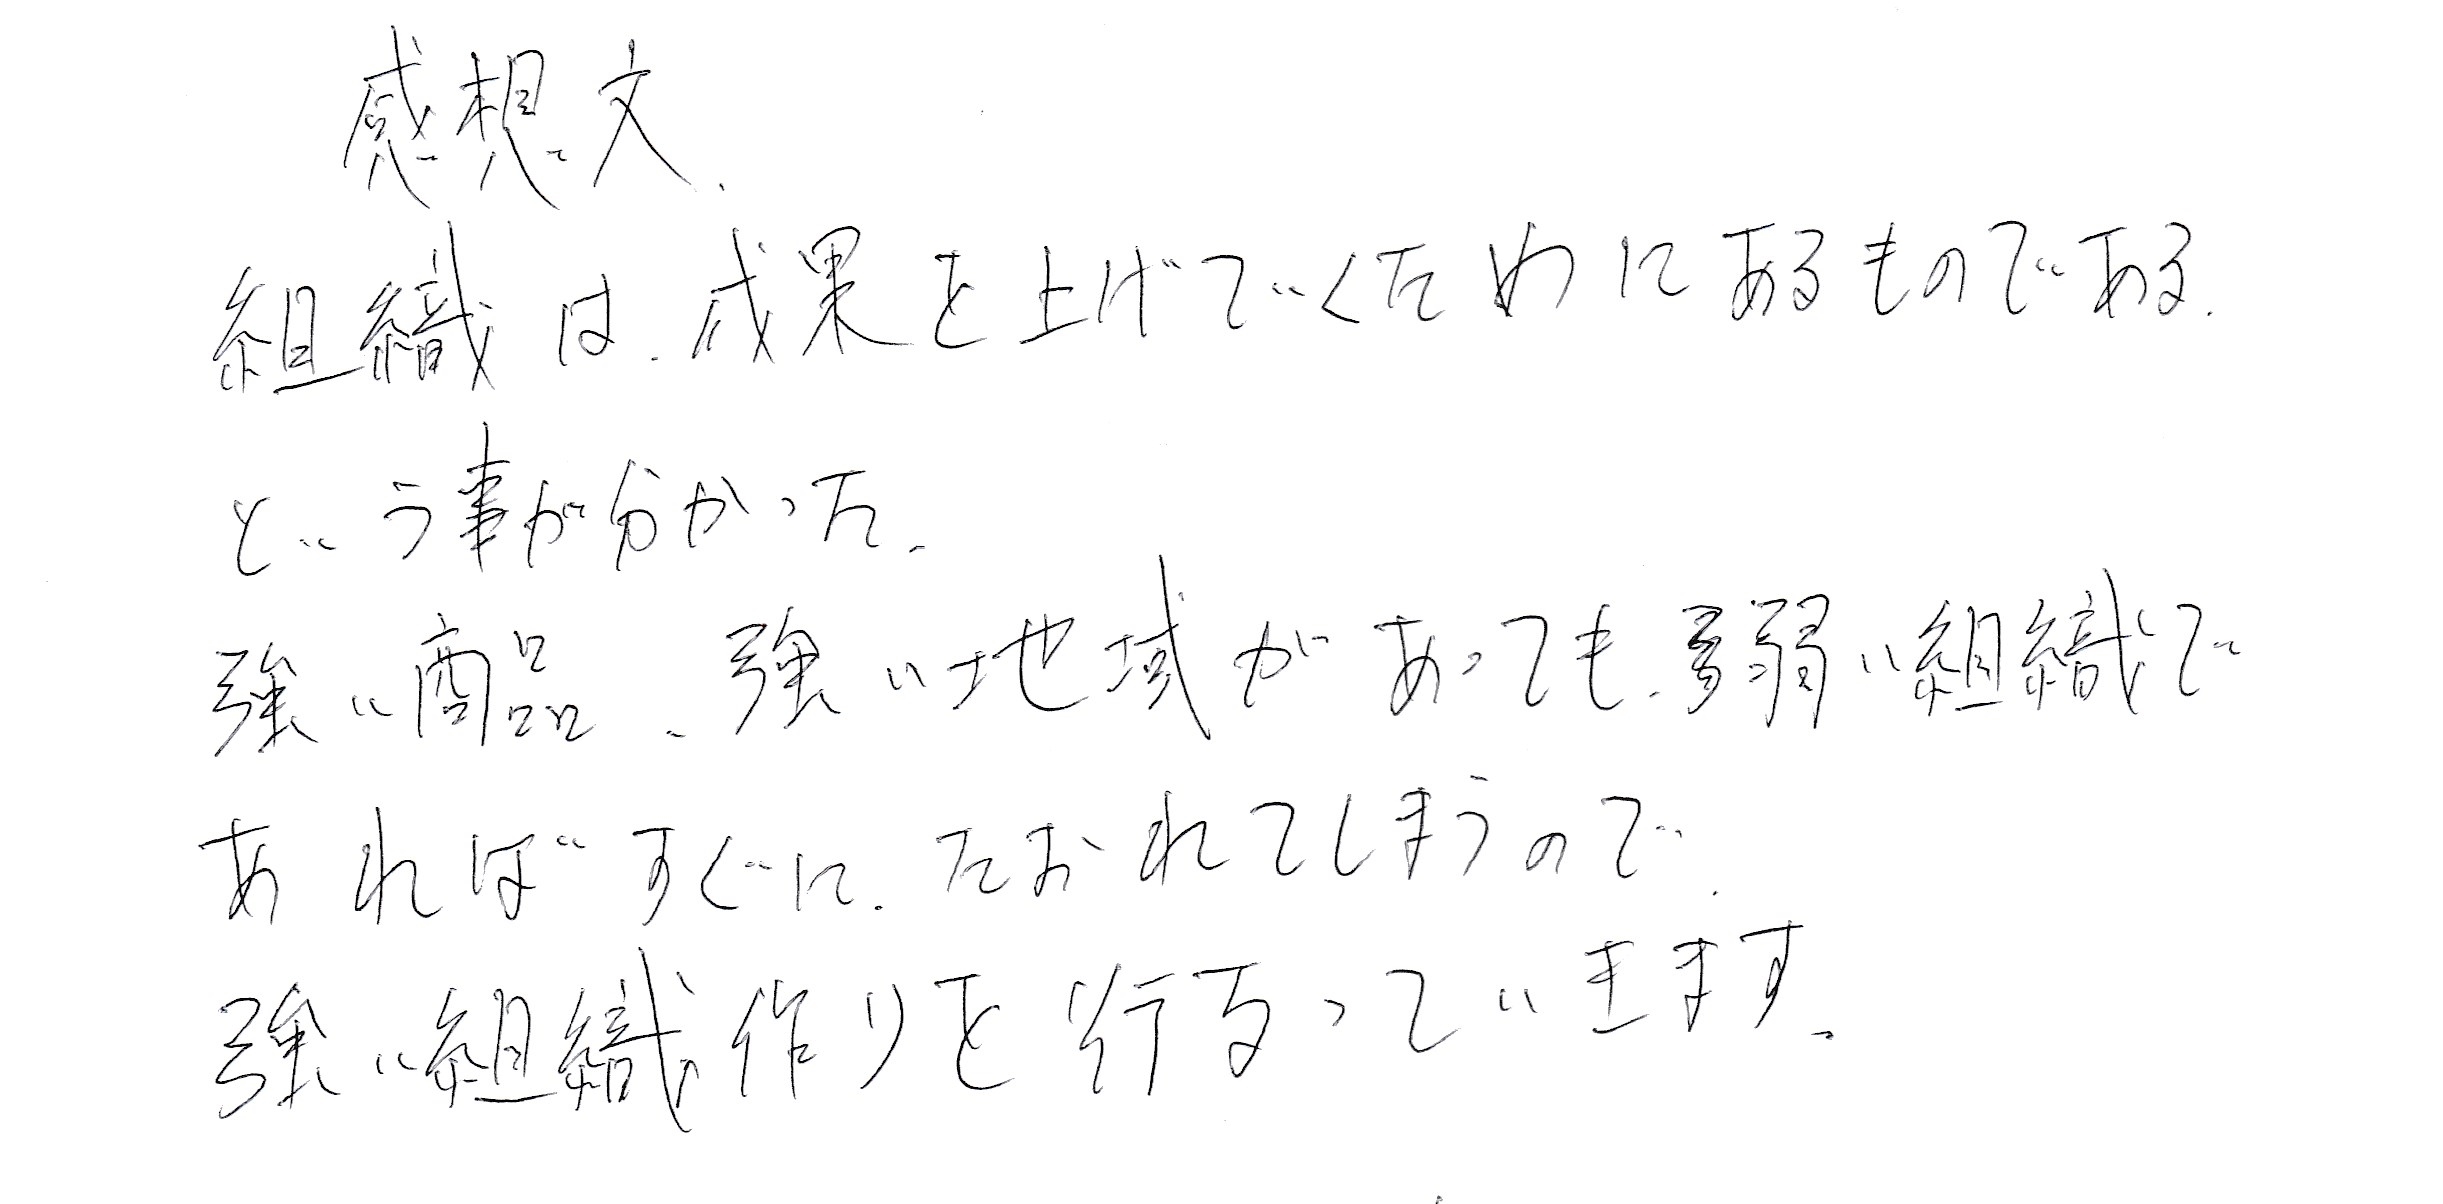 感想文.
組織は、成果を上げていくためにあるものである.
という事が分かった.
強い商品、強い地域があっても、弱い組織で
あればすぐに、たおれてしまうので、
強い組織作りを行なっていきます.